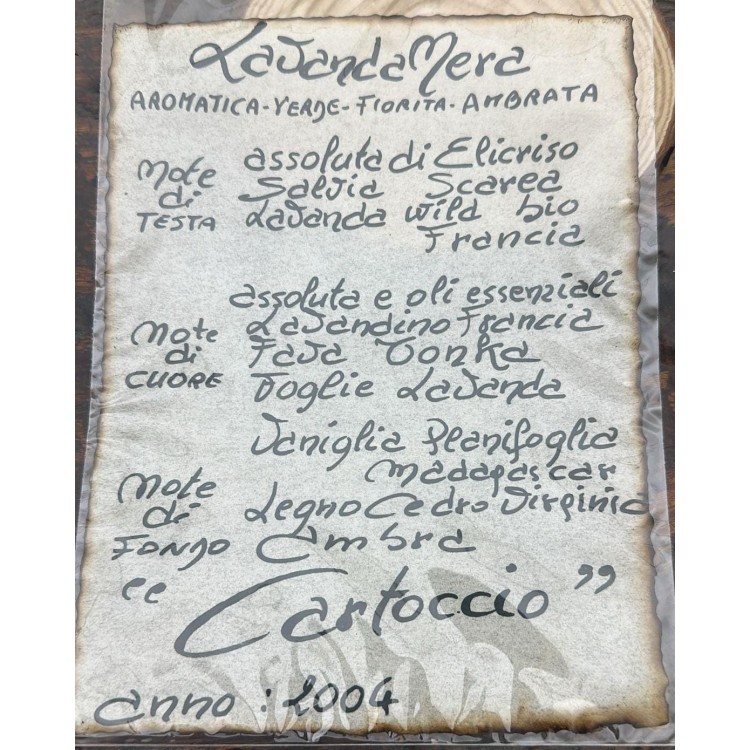 LavandaMera
AROMATICA-VERDE-FIORITA-AMBRATA
Note di TESTA
assoluta di Elicriso
Salvia Scarea
Lavanda wild bio
Francia
Note di CUORE
assoluta e oli essenziali
Lavandino Francia
Fava Tonka
Foglie Lavanda
Note di FONDO
Vaniglia Planifoglia
Madagascar
Legno Cedro Virginia
Ambra
“Cartoccio”
anno: 2004